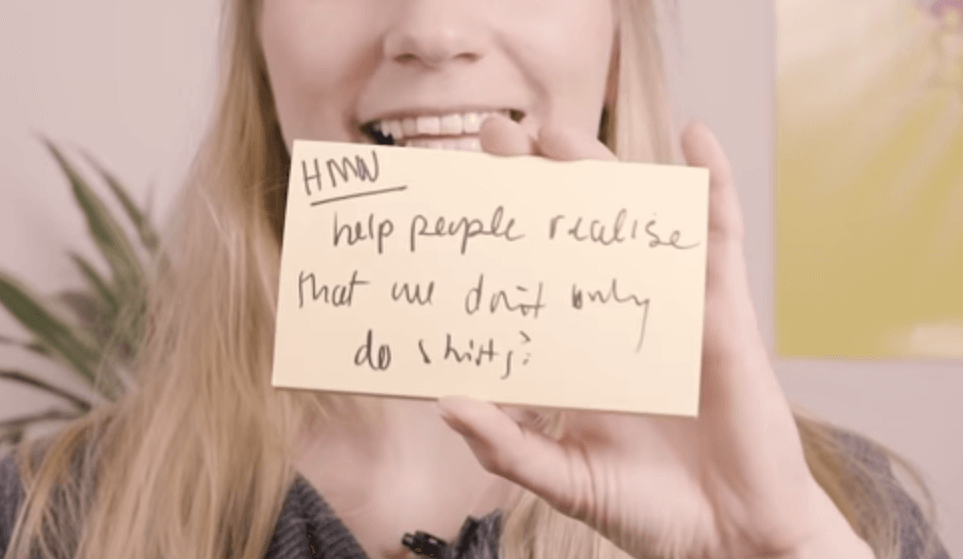 HMW
help people realise
that we don't only
do shirts?